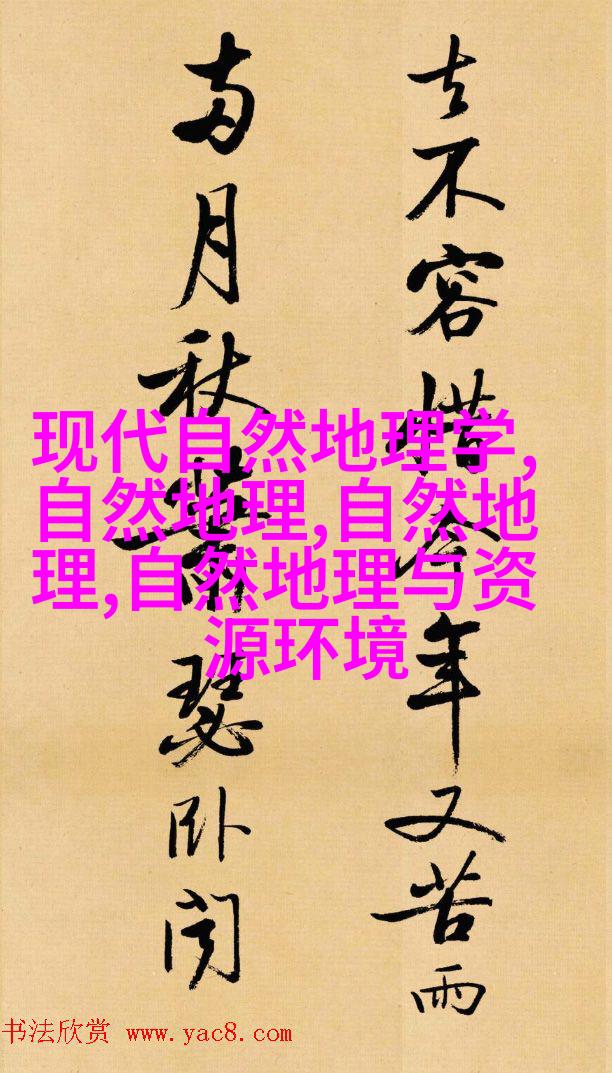 去不容惜今年又苦雨
两月秋蕭瑟卧闻
现代自然地理学,
自然地理,自然地
理,自然地理与资
源环境
书法欣赏 www.yac8.com